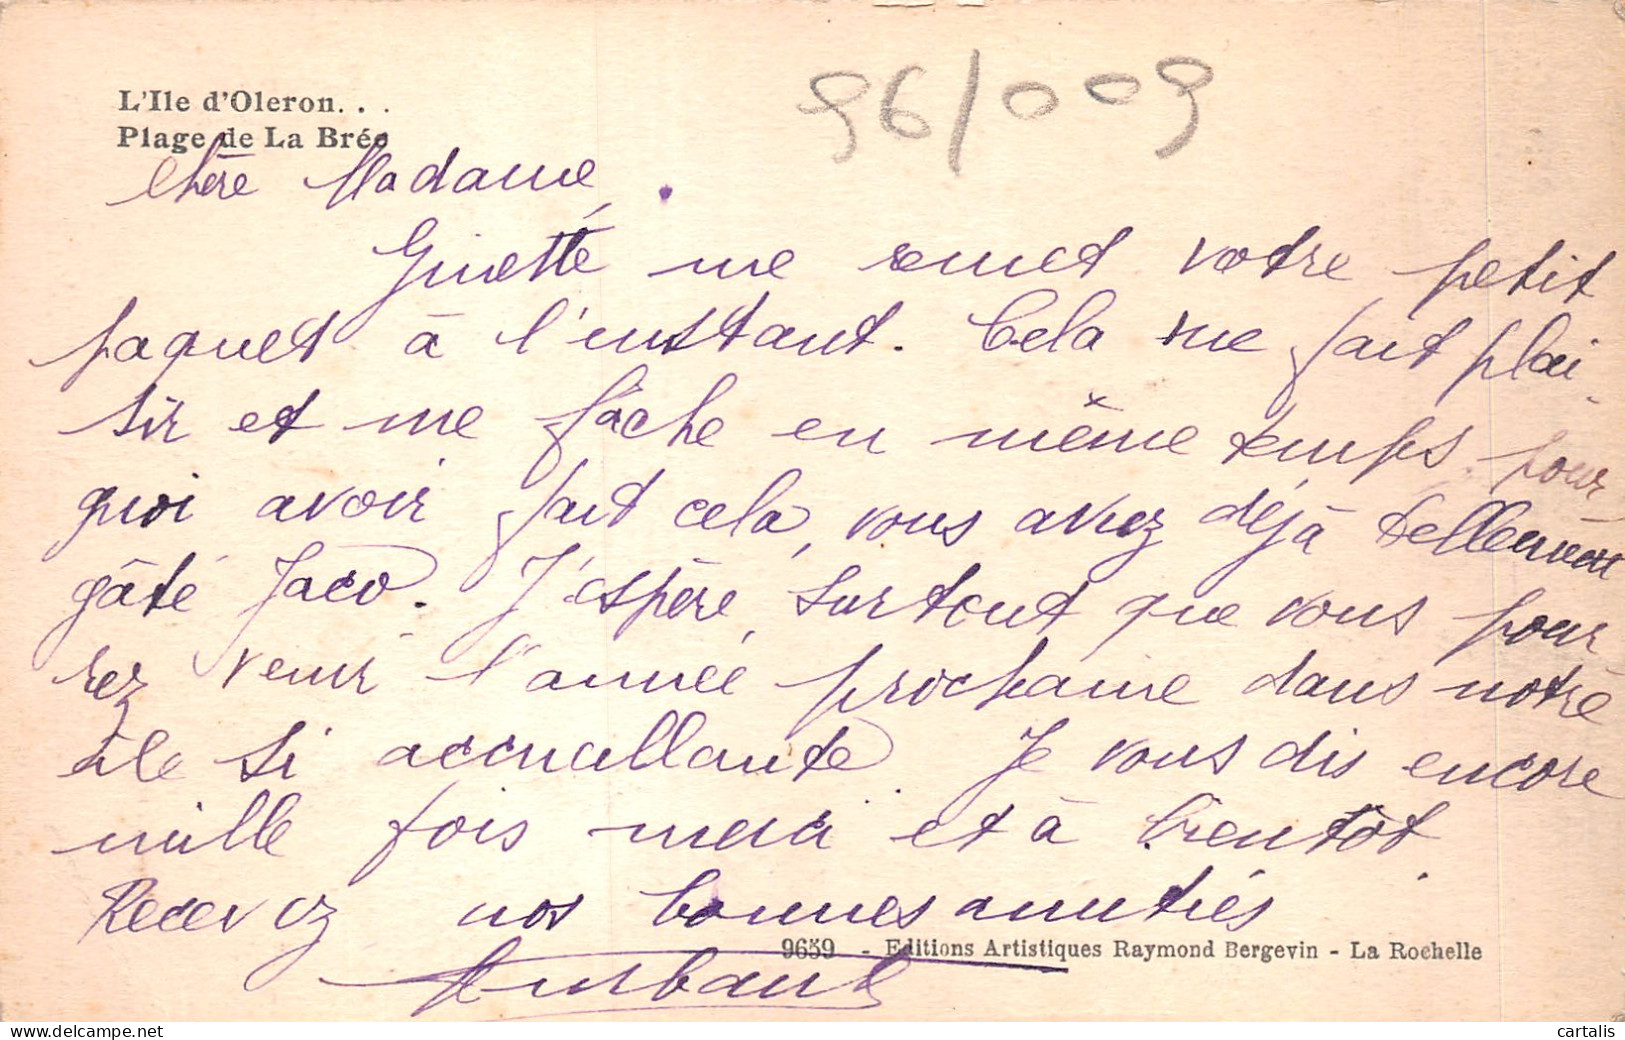 L'Ile d'Oleron. . .
Plage de La Brée
96/009
Chère Madame,
Ginette me remet votre petit
paquet à l'instant. Cela me fait plai-
sir et me fâche en même temps pour
quoi avoir fait cela, vous avez déjà tellement
gâté Jaco. J'espère surtout que vous pour-
rez venir l'année prochaine dans notre
île si accueillante. Je vous dis encore
mille fois merci et à bientôt.
Recevez nos bonnes amitiés
9659 - Editions Artistiques Raymond Bergevin - La Rochelle
delcampe.net
cartalis